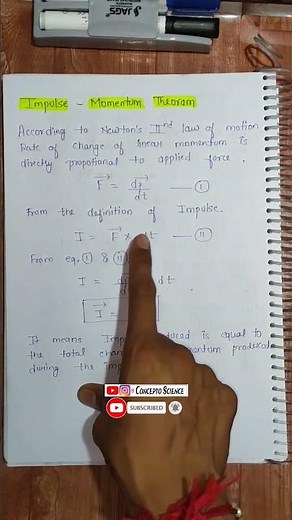 JAGS
Impulse - Momentum Theoram
According to Newton's IInd law of motion
Rate of change of linear momentum is
directly propotional to applied force.
F⃗ = dp⃗/dt — (I)
From the definition of Impulse.
I = F⃗ × dt — (II)
From eq. (I) & (II)
I = dt
I⃗ =
It means equal to
the total
during the
Concepto Science
SUBSCRIBED